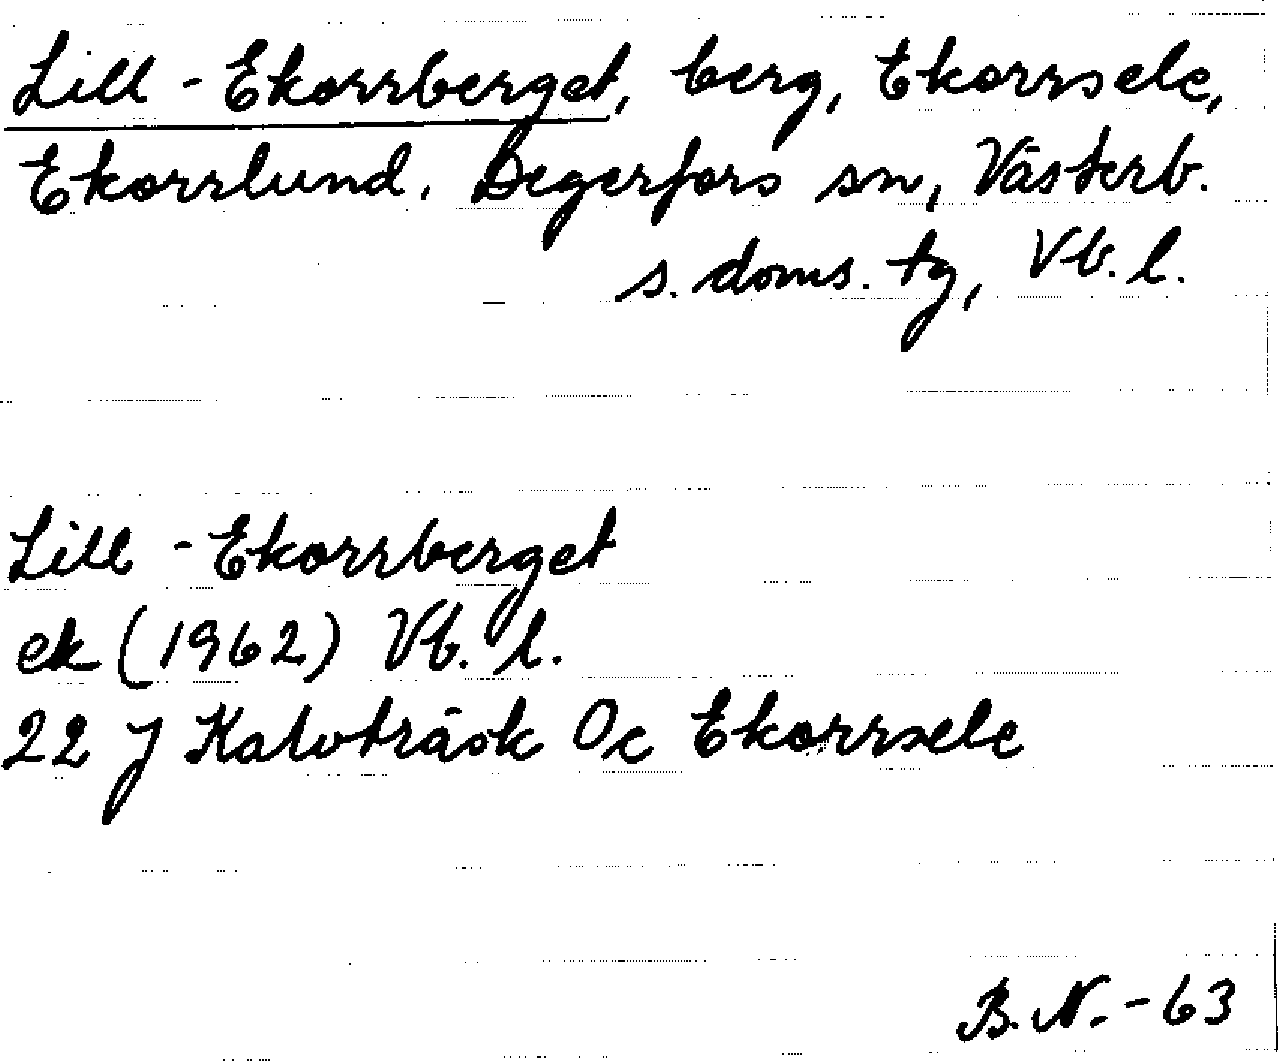 Lill-Ekorrberget, berg, Ekorrsele,
Ekorrlund, Degerfors sn, Västerb.
s. doms. tg, Vb. l.
Lill-Ekorrberget
ek (1962) Vb. l.
22 J Kalvträsk Oc Ekorrsele
B. N. -63